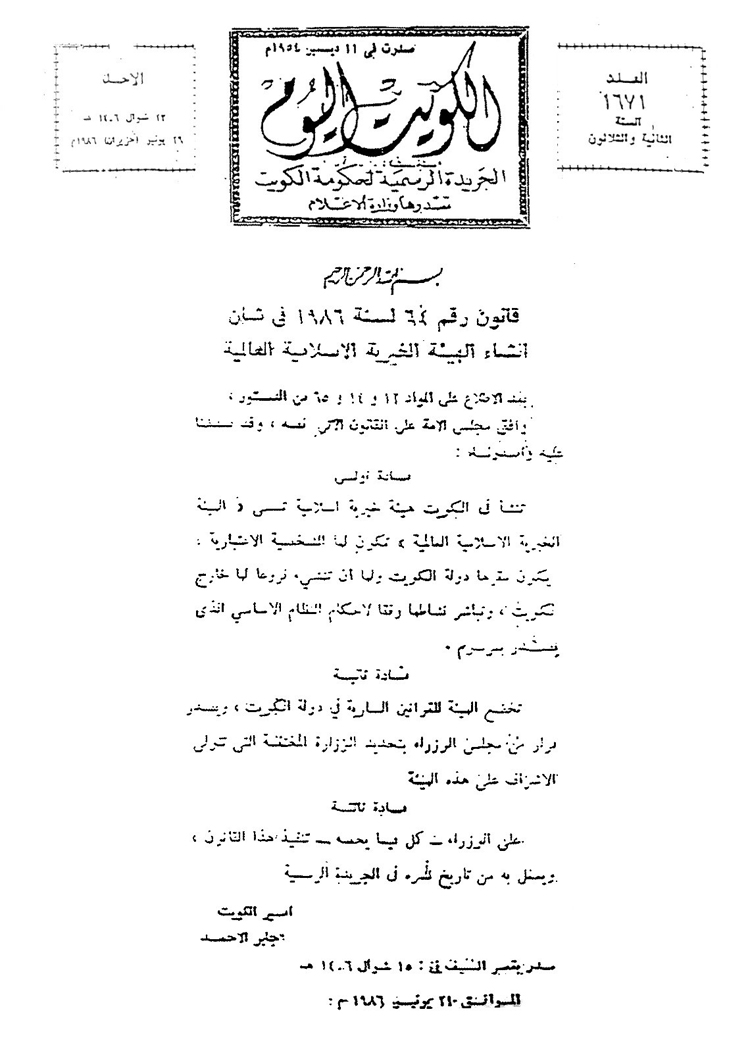 العدد
١٦٧١
السنة
الثانية والثلاثون
صدرت في ١١ ديسمبر ١٩٥٤م
الكويت اليوم
الجريدة الرسمية لحكومة الكويت
تصدرها وزارة الاعلام
الاحد
٢٢ شوال ١٤٠٦ هـ
٢٩ يونيو (حزيران) ١٩٨٦م
بسم الله الرحمن الرحيم
قانون رقم ٦٤ لسنة ١٩٨٦ في شان
انشاء الهيئة الخيرية الاسلامية العالمية
بعد الاطلاع على المواد ١٢ و ١٤ و ٦٥ من الدستور ،
وافق مجلس الامة على القانون الآتي نصه ، وقد صدقنا
عليه وأصدرناه :
مادة أولى
تنشأ في الكويت هيئة خيرية اسلامية تسمى « الهيئة
الخيرية الاسلامية العالمية » تكون لها الشخصية الاعتبارية ،
يكون مقرها دولة الكويت ولها أن تنشيء فروعا لها خارج
الكويت ، وتباشر نشاطها وفقا لاحكام النظام الاساسي الذي
يصدر بمرسوم .
مادة ثانية
تخضع الهيئة للقوانين السارية في دولة الكويت ، ويصدر
قرار من مجلس الوزراء بتحديد الوزارة المختصة التي تتولى
الاشراف على هذه الهيئة
مادة ثالثة
على الوزراء – كل فيما يخصه – تنفيذ هذا القانون ،
ويعمل به من تاريخ نشره في الجريدة الرسمية
امير الكويت
جابر الاحمد
صدر بقصر السيف في : ١٥ شوال ١٤٠٦ هـ
الموافق يونيو ١٩٨٦ م :